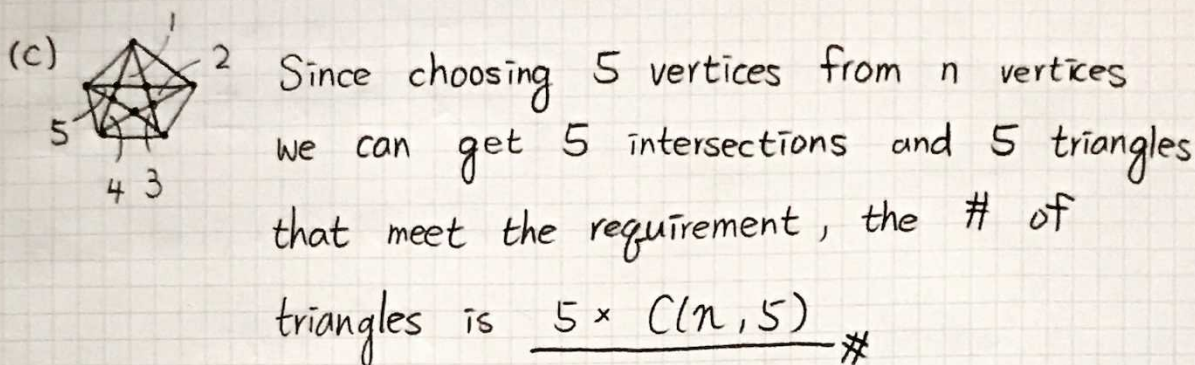 (c) 1 2 Since choosing 5 vertices from n vertices
5 we can get 5 intersections and 5 triangles
4 3 that meet the requirement, the # of
triangles is 5 × C(n,5) #